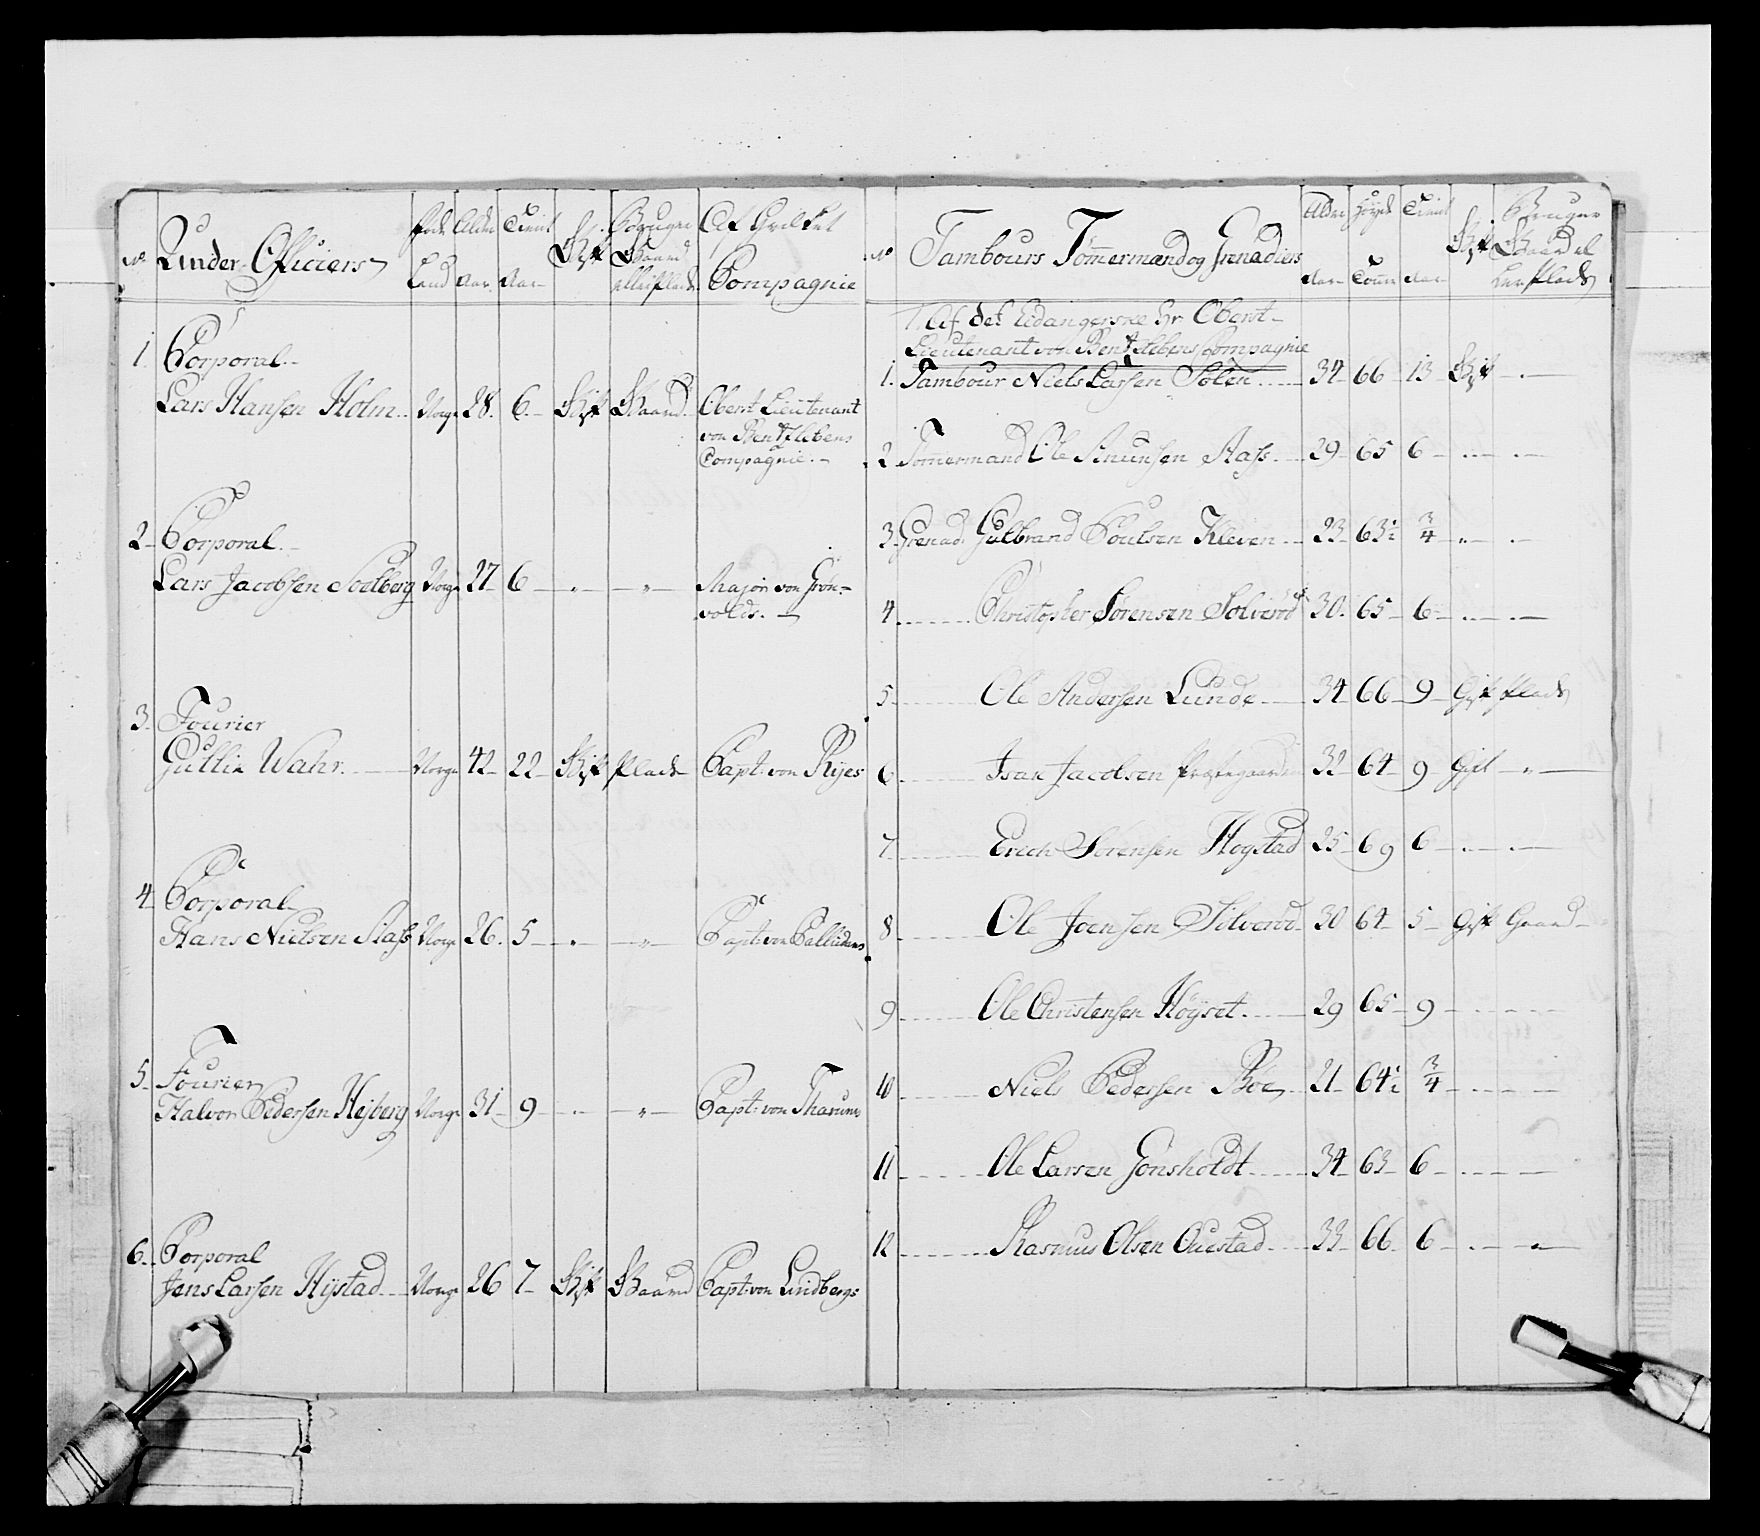 No. Under Officiers Føde Land Alder Aar Tient Aar Gift Bruger Gaard eller Plads Af Hvilket Compagnie
1. Corporal
Lars Hansen Holm Norge 28. 6. Gift Gaard Oberst Lieutenant
von Bentzlebens
Compagnie.
2 Corporal.
Lars Jacobsen Norge 27 6 " " Major von Grøn-
volds.
3. Fourier
Gullix Wahr. Norge 42 22 Gift Plads Capt: von Ryes
4 Corporal
Hans Nielsen Aass Norge 26. 5 " " Capt: von Palludans
5. Fourier
Halvor Pedersen Hejberg Norge 31 9 " " Capt: von
6. Corporal
Jens Larsen Hystad Norge 26 7 Gift Gaard Capt: von Lindbergs
No Tambours Tømmermænd og Grenadiers Alder Aar Høyde Tomm Tient Aar Gift Bruger Gaard el
ler Plads
1. Af det Eidangerske Hr Oberst-
Lieutenant von Bentzlebens Compagnie
1. Tambour Niels Larsen Solen 34 66 13 Gift "
2 Tømmermand Ole Knunsen Aass 29 65 6 " "
3 Grenad: Gulbrand Poulsen Kleven 23 63½ ¾ " "
4 Christopher Sørensen Solverød 30. 65 6 " "
5 Ole Andersen Lunde 34 66 9 Gift Plads
6 Isak Jacobsen Præstegaarden 32 64 9 Gift "
7 Erich Sørensen Hogstad 25 69 6 " "
8 Ole Joensen Silverød 30 64 5 Gift Gaard
9 Ole Christensen Höyset. 29 65 9
10 Niels Pedersen Böe 21 64½ ¾
11 Ole Larsen Gonsholdt 34 63 6
12 Rasmus Olsen Ouestad 33 66 6 "